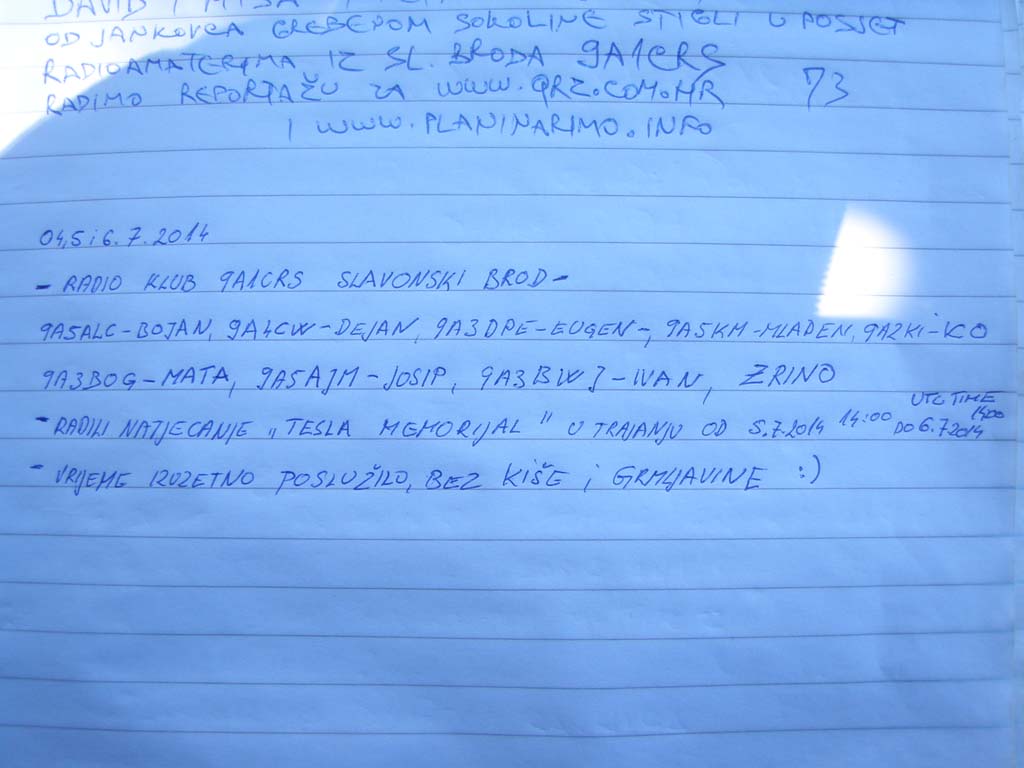 DAVID I
OD JANKOVCA GREBENOM SOKOLINE STIGLI U POSJET
RADIOAMATERIMA IZ SL. BRODA 9A1CRS
RADIMO REPORTAŽU ZA WWW.QRZ.COM.HR 73
I WWW.PLANINARIMO.INFO
04,5 i 6.7.2014
- RADIO KLUB 9A1CRS SLAVONSKI BROD -
9A5ALC-BOJAN, 9A4CW-DEJAN, 9A3DPE-EUGEN-, 9A5KM-MLADEN, 9A2KI-ICO
9A3BOG-MATA, 9A5AJM-JOSIP, 9A3BWJ-IVAN, ZRINO
- RADILI NATJECANJE „TESLA MEMORIJAL" U TRAJANJU OD 5.7.2014 14:00 DO 6.7.2014 1400 UTC TIME
- VRIJEME IZUZETNO POSLUŽILO, BEZ KIŠE i GRMLJAVINE :)